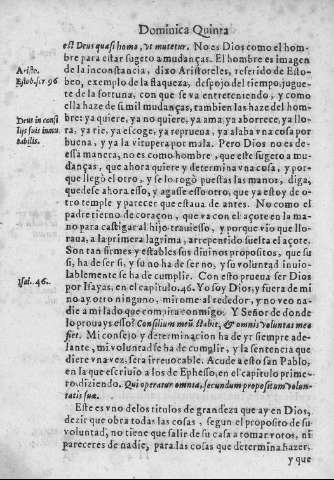 Dominica Quinta
est Deus quasi homo, vt mutetur. No es Dios como el hom-
bre para estar sugeto a mudanças. El hombre es imagen
Aristo.
de la inconstancia, dixo Aristoteles, referido de Estob-
Estob. ser. 96
beo, exemplo de la flaqueza, despojo del tiempo, jugue-
te de la fortuna, con que se va entreteniendo, y como
ella haze de si mil mudanças, tambien las haze del hom-
Deus in consi
bre: ya quiere, ya no quiere, ya ama, ya aborrece, ya llo-
lijs suis immu
ra, ya rie, ya escoge, ya reprueua, ya alaba vna cosa por
tabilis.
buena, y ya la vitupera por mala. Pero Dios no es de-
essa manera, no es como hombre, que este sugeto a mu-
danças, que ahora quiere y determina vna cosa, y por-
que llegò el otro, y se lo rogò puestas las manos, diga,
quedese ahora esso, y agasse essotro, que ya estoy de o-
tro temple y parecer que estaua de antes. No como el
padre tierno de coraçon, que va con el açote en la ma-
no para castigar al hijo trauiesso, y porque vio que llo-
raua, a la primera lagrima, arrepentido suelta el açote.
Son tan firmes y estables sus diuinos propositos, que su
si, ha de ser si, y su no ha de ser no, y su voluntad inuio-
lablemente se ha de cumplir. Con esto prueua ser Dios
Isai. 46.
por Isayas, en el capitulo. 46. Yo soy Dios, y fuera de mi
no ay otro ninguno, mirome al rededor, y no veo na-
die a mi lado que compita conmigo. Y Señor de donde
lo prouays esso? Consilium meũ stabit, & omnis voluntas mea
fiet. Mi consejo y determinacion ha de yr siempre ade-
lante, mi voluntad se ha de cumplir, y la sentencia que
diere vna vez, sera irreuocable. Acude a esto san Pablo,
en la que escriuio a los de Ephesso, en el capitulo prime-
ro diziendo. Qui operatur omnia, secundum propositum volun-
tatis suæ.
Este es vno de los titulos de grandeza que ay en Dios,
dezir que obra todas las cosas, segun el proposito de su
voluntad, no tiene que salir de su casa a tomar votos, ni
pareceres de nadie, para las cosas que determina hazer,
y que